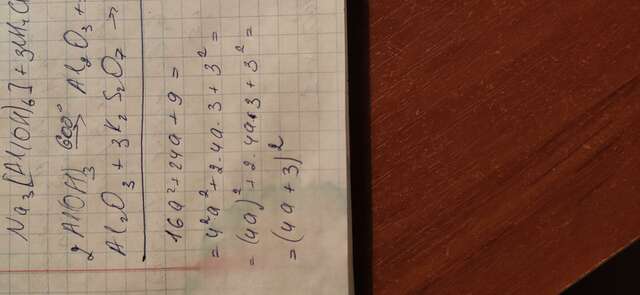 Na₃[Al(OH)₆] + 3NH₄C
2Al(OH)₃ 600° → Al₂O₃ +
Al₂O₃ + 3K₂S₂O₇ →
16a² + 24a + 9 =
= 4²a² + 2·4a·3 + 3² =
= (4a)² + 2·4a·3 + 3² =
= (4a + 3)²